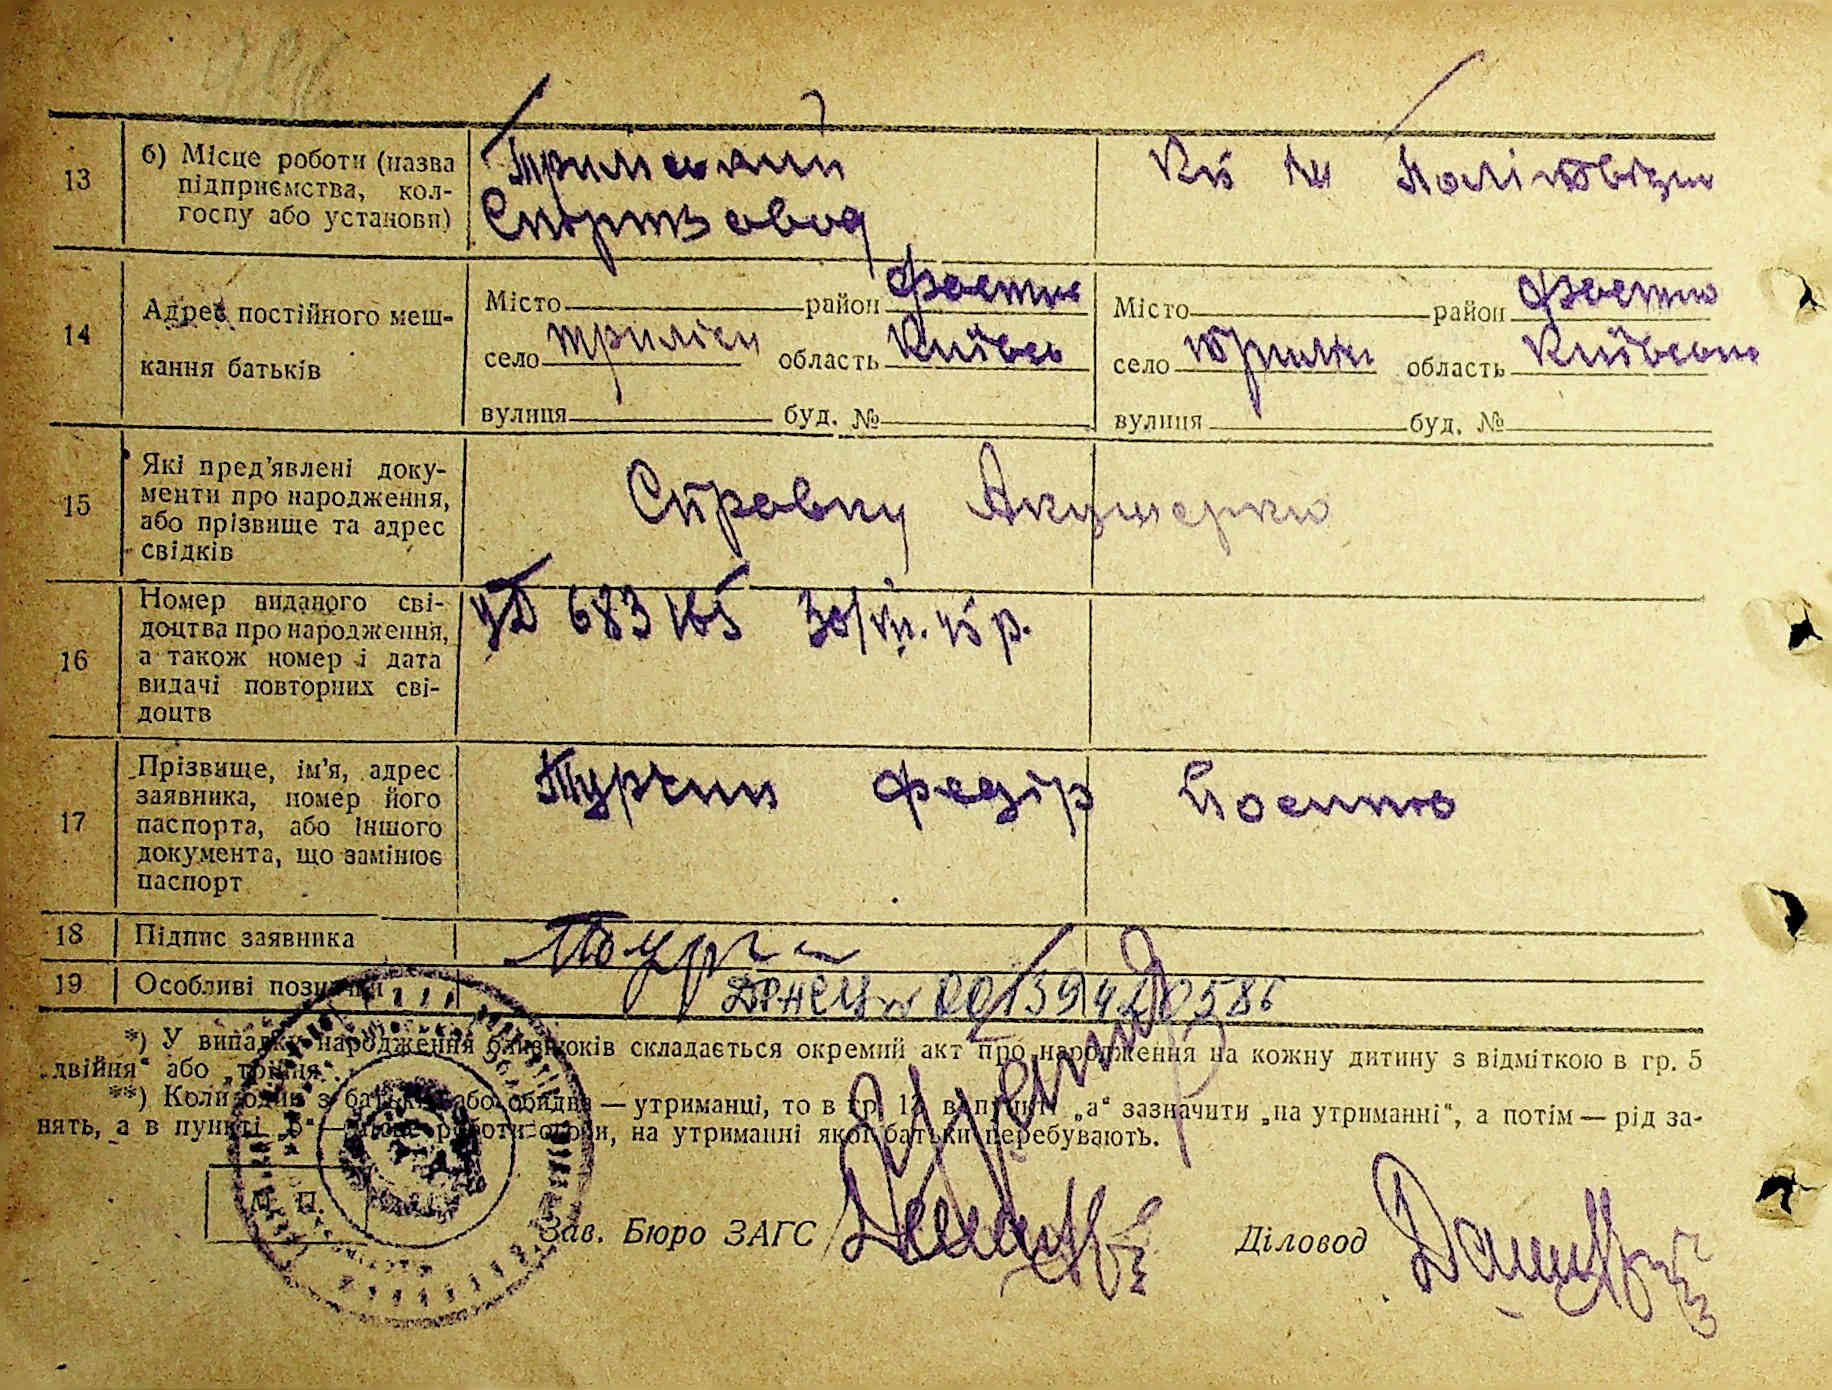 13
б) Місце роботи (назва підприємства, кол-
госпу або установи)
Трилиський
Спиртзавод
К-п ім Політовідділ
14
Адрес постійного меш-
кання батьків
Місто район Фастів
село Триліси область Київськ
вулиця буд. №
Місто район Фастів
село Триліси область Київськ
вулиця буд. №
15
Які пред'явлені доку-
менти про народження,
або прізвище та адрес
свідків
Справку Акушерки
16
Номер виданого сві-
доцтва про народження,
а також номер і дата
видачі повторних сві-
доцтв
УД 683165 30/VII. 45 р.
17
Прізвище, ім'я, адрес
заявника, номер його
паспорта, або іншого
документа, що замінює
паспорт
Турчин Федір Йосипов
18 Підпис заявника
19 Особливі позначки
*) У випадку народження близнюків складається окремий акт про народження на кожну дитину з відміткою в гр. 5
„двійня" або „трійня".
**) Коли один з батьків або обидва — утриманці, то в гр. 13 в пункті „а" зазначити „на утриманні", а потім — рід за-
нять, а в пункті „б" — місце роботи особи, на утриманні якої батьки перебувають.
М. П.
Зав. Бюро ЗАГС
Діловод